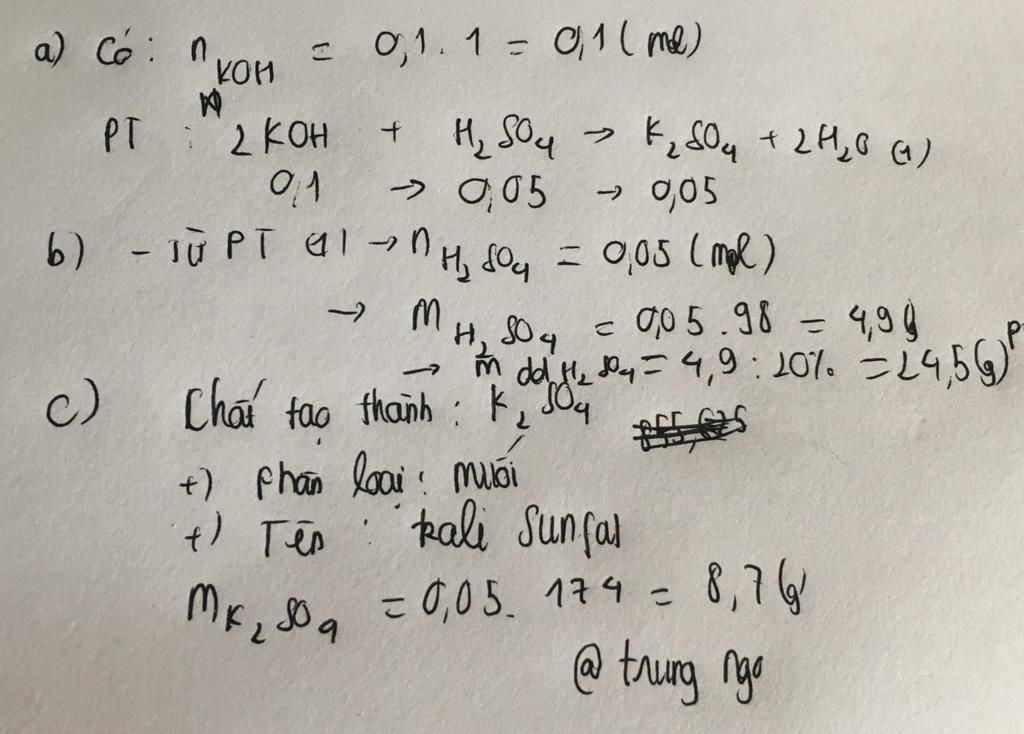 a) Có : n KOH = 0,1 . 1 = 0,1 (mol)
PT : 2 KOH + H2SO4 → K2SO4 + 2H2O (1)
0,1 → 0,05 → 0,05
b) - Từ PT (1) → n H2SO4 = 0,05 (mol)
→ m H2SO4 = 0,05 . 98 = 4,9 g
→ m dd H2SO4 = 4,9 : 20% = 24,5 (g)
c) Chất tạo thành : K2SO4
+) Phân loại : muối
+) Tên : kali sunfat
m K2SO4 = 0,05 . 174 = 8,7 (g)
@ trung ngo